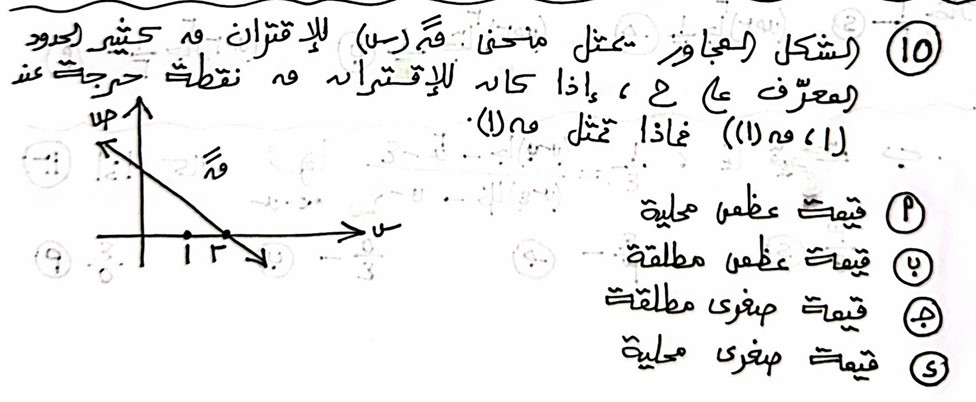 ١٥ الشكل المجاور يمثل منحنى قَ (س) للإقتران ق كثير الحدود
المعرّف على ح ، إذا كان للإقتران ق نقطة حرجة عند
(١ ، ق(١)) فماذا تمثل ق(١).
ص
قَ
س
١ ٢
أ قيمة عظمى محلية
ب قيمة عظمى مطلقة
ج قيمة صغرى مطلقة
د قيمة صغرى محلية